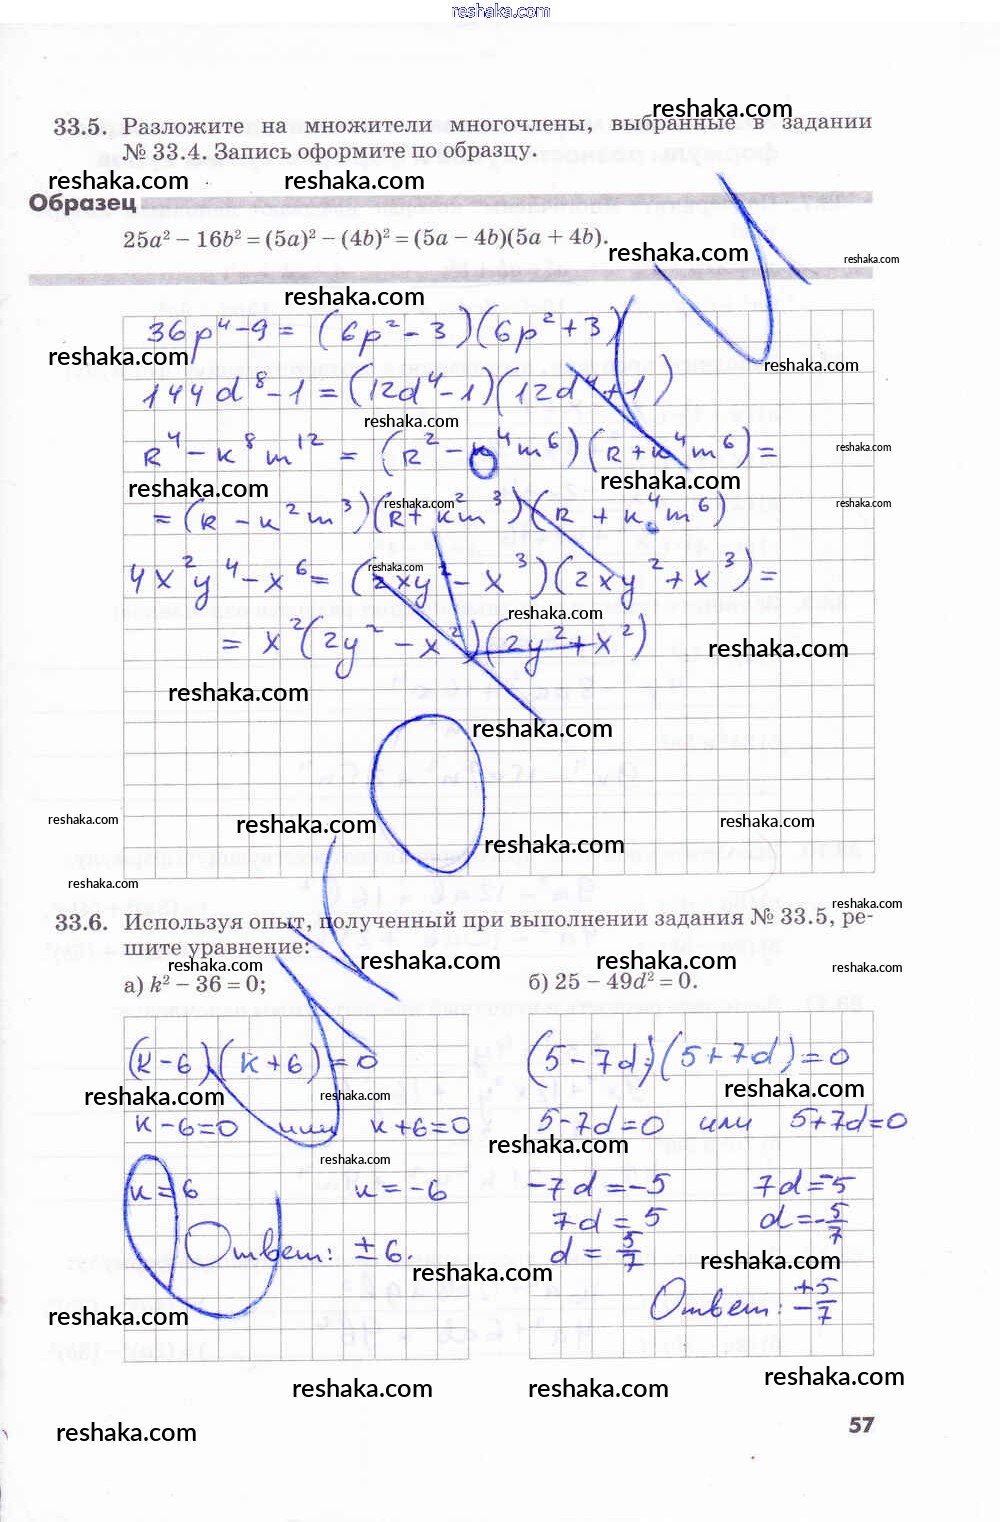 reshaka.com
reshaka.com
33.5. Разложите на множители многочлены, выбранные в задании
№ 33.4. Запись оформите по образцу.
reshaka.com reshaka.com
Образец
25a² − 16b² = (5a)² − (4b)² = (5a − 4b)(5a + 4b).
reshaka.com reshaka.com
reshaka.com
36p⁴ − 9 = (6p² − 3)(6p² + 3)
reshaka.com reshaka.com
144d⁸ − 1 = (12d⁴ − 1)(12d⁴ + 1)
reshaka.com
R⁴ − k⁸m¹² = (R² − k⁴m⁶)(R + k⁴m⁶) =
reshaka.com
reshaka.com reshaka.com
reshaka.com reshaka.com
= (R − k²m³)(R + km²³)(R + k⁴m⁶)
4x²y⁴ − x⁶ = (2xy² − x³)(2xy² + x³) =
reshaka.com
reshaka.com
= x²(2y² − x²)(2y² + x²)
reshaka.com
reshaka.com
reshaka.com
reshaka.com reshaka.com reshaka.com
reshaka.com
reshaka.com
reshaka.com
33.6. Используя опыт, полученный при выполнении задания № 33.5, ре-
шите уравнение:
reshaka.com reshaka.com reshaka.com reshaka.com
а) k² − 36 = 0; б) 25 − 49d² = 0.
(k − 6)(k + 6) = 0 (5 − 7d)(5 + 7d) = 0
reshaka.com reshaka.com reshaka.com
k − 6 = 0 или k + 6 = 0 5 − 7d = 0 или 5 + 7d = 0
reshaka.com reshaka.com
k = 6 k = −6 −7d = −5 7d = −5
7d = 5 d = −5/7
Ответ: ±6. d = 5/7
reshaka.com reshaka.com
Ответ: ±5/7
reshaka.com reshaka.com
reshaka.com reshaka.com reshaka.com
reshaka.com
57